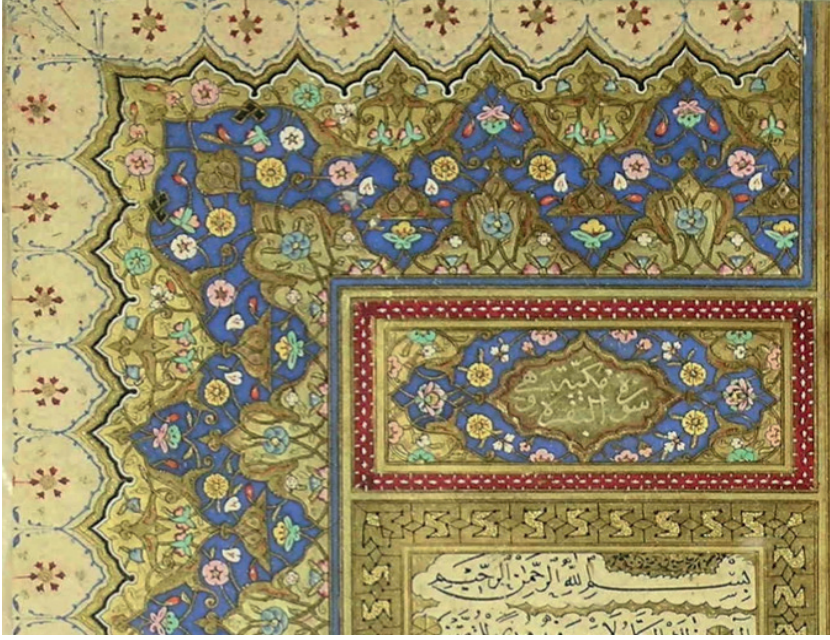 سورة البقرة وهى مكية
بِسْمِ اللهِ الرَّحْمٰنِ الرَّحِيمِ